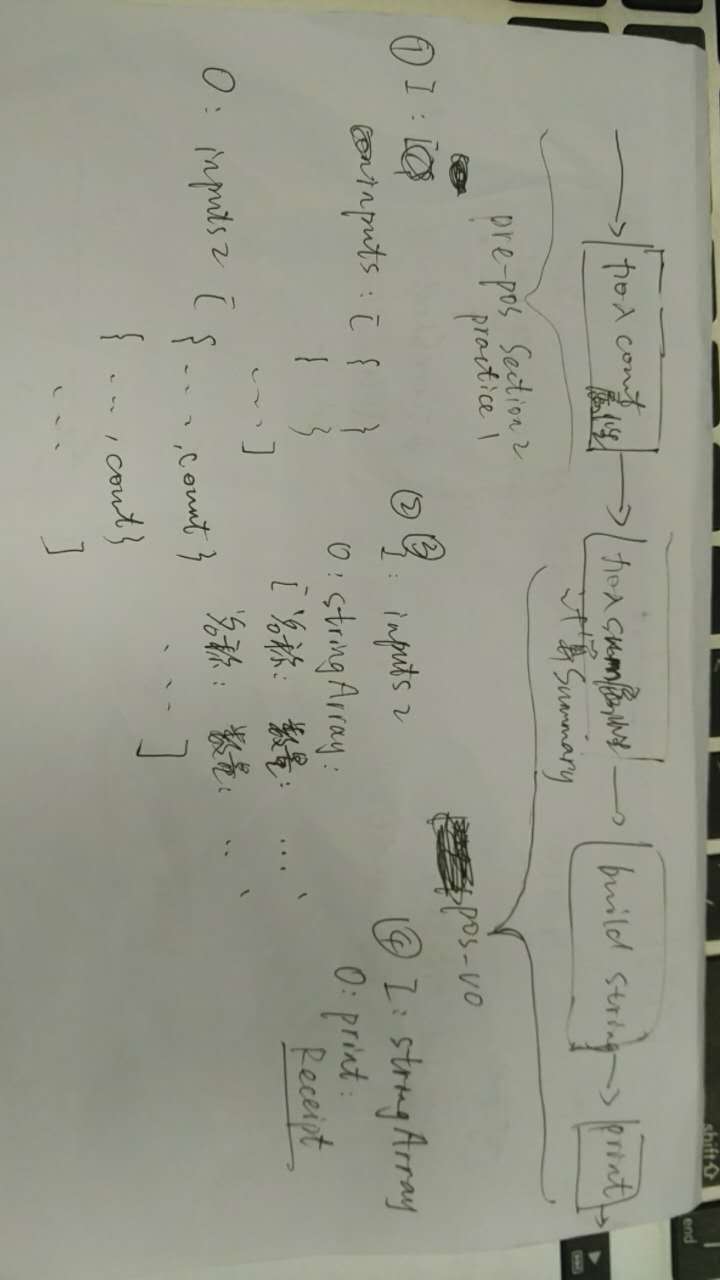 加入count属性
加入sum属性
计算Summary
build string
print
pre-pos Section 2
practice 1
pos-v0
① I:
inputs: [ { }
{ }
...]
O: inputs2 [ { ..., count }
{ ..., count }
... ]
② I: inputs2
O: stringArray:
[ 名称: 数量: ...,
名称: 数量: ..,
... ]
④ I: stringArray
O: print:
Receipt
shift
end